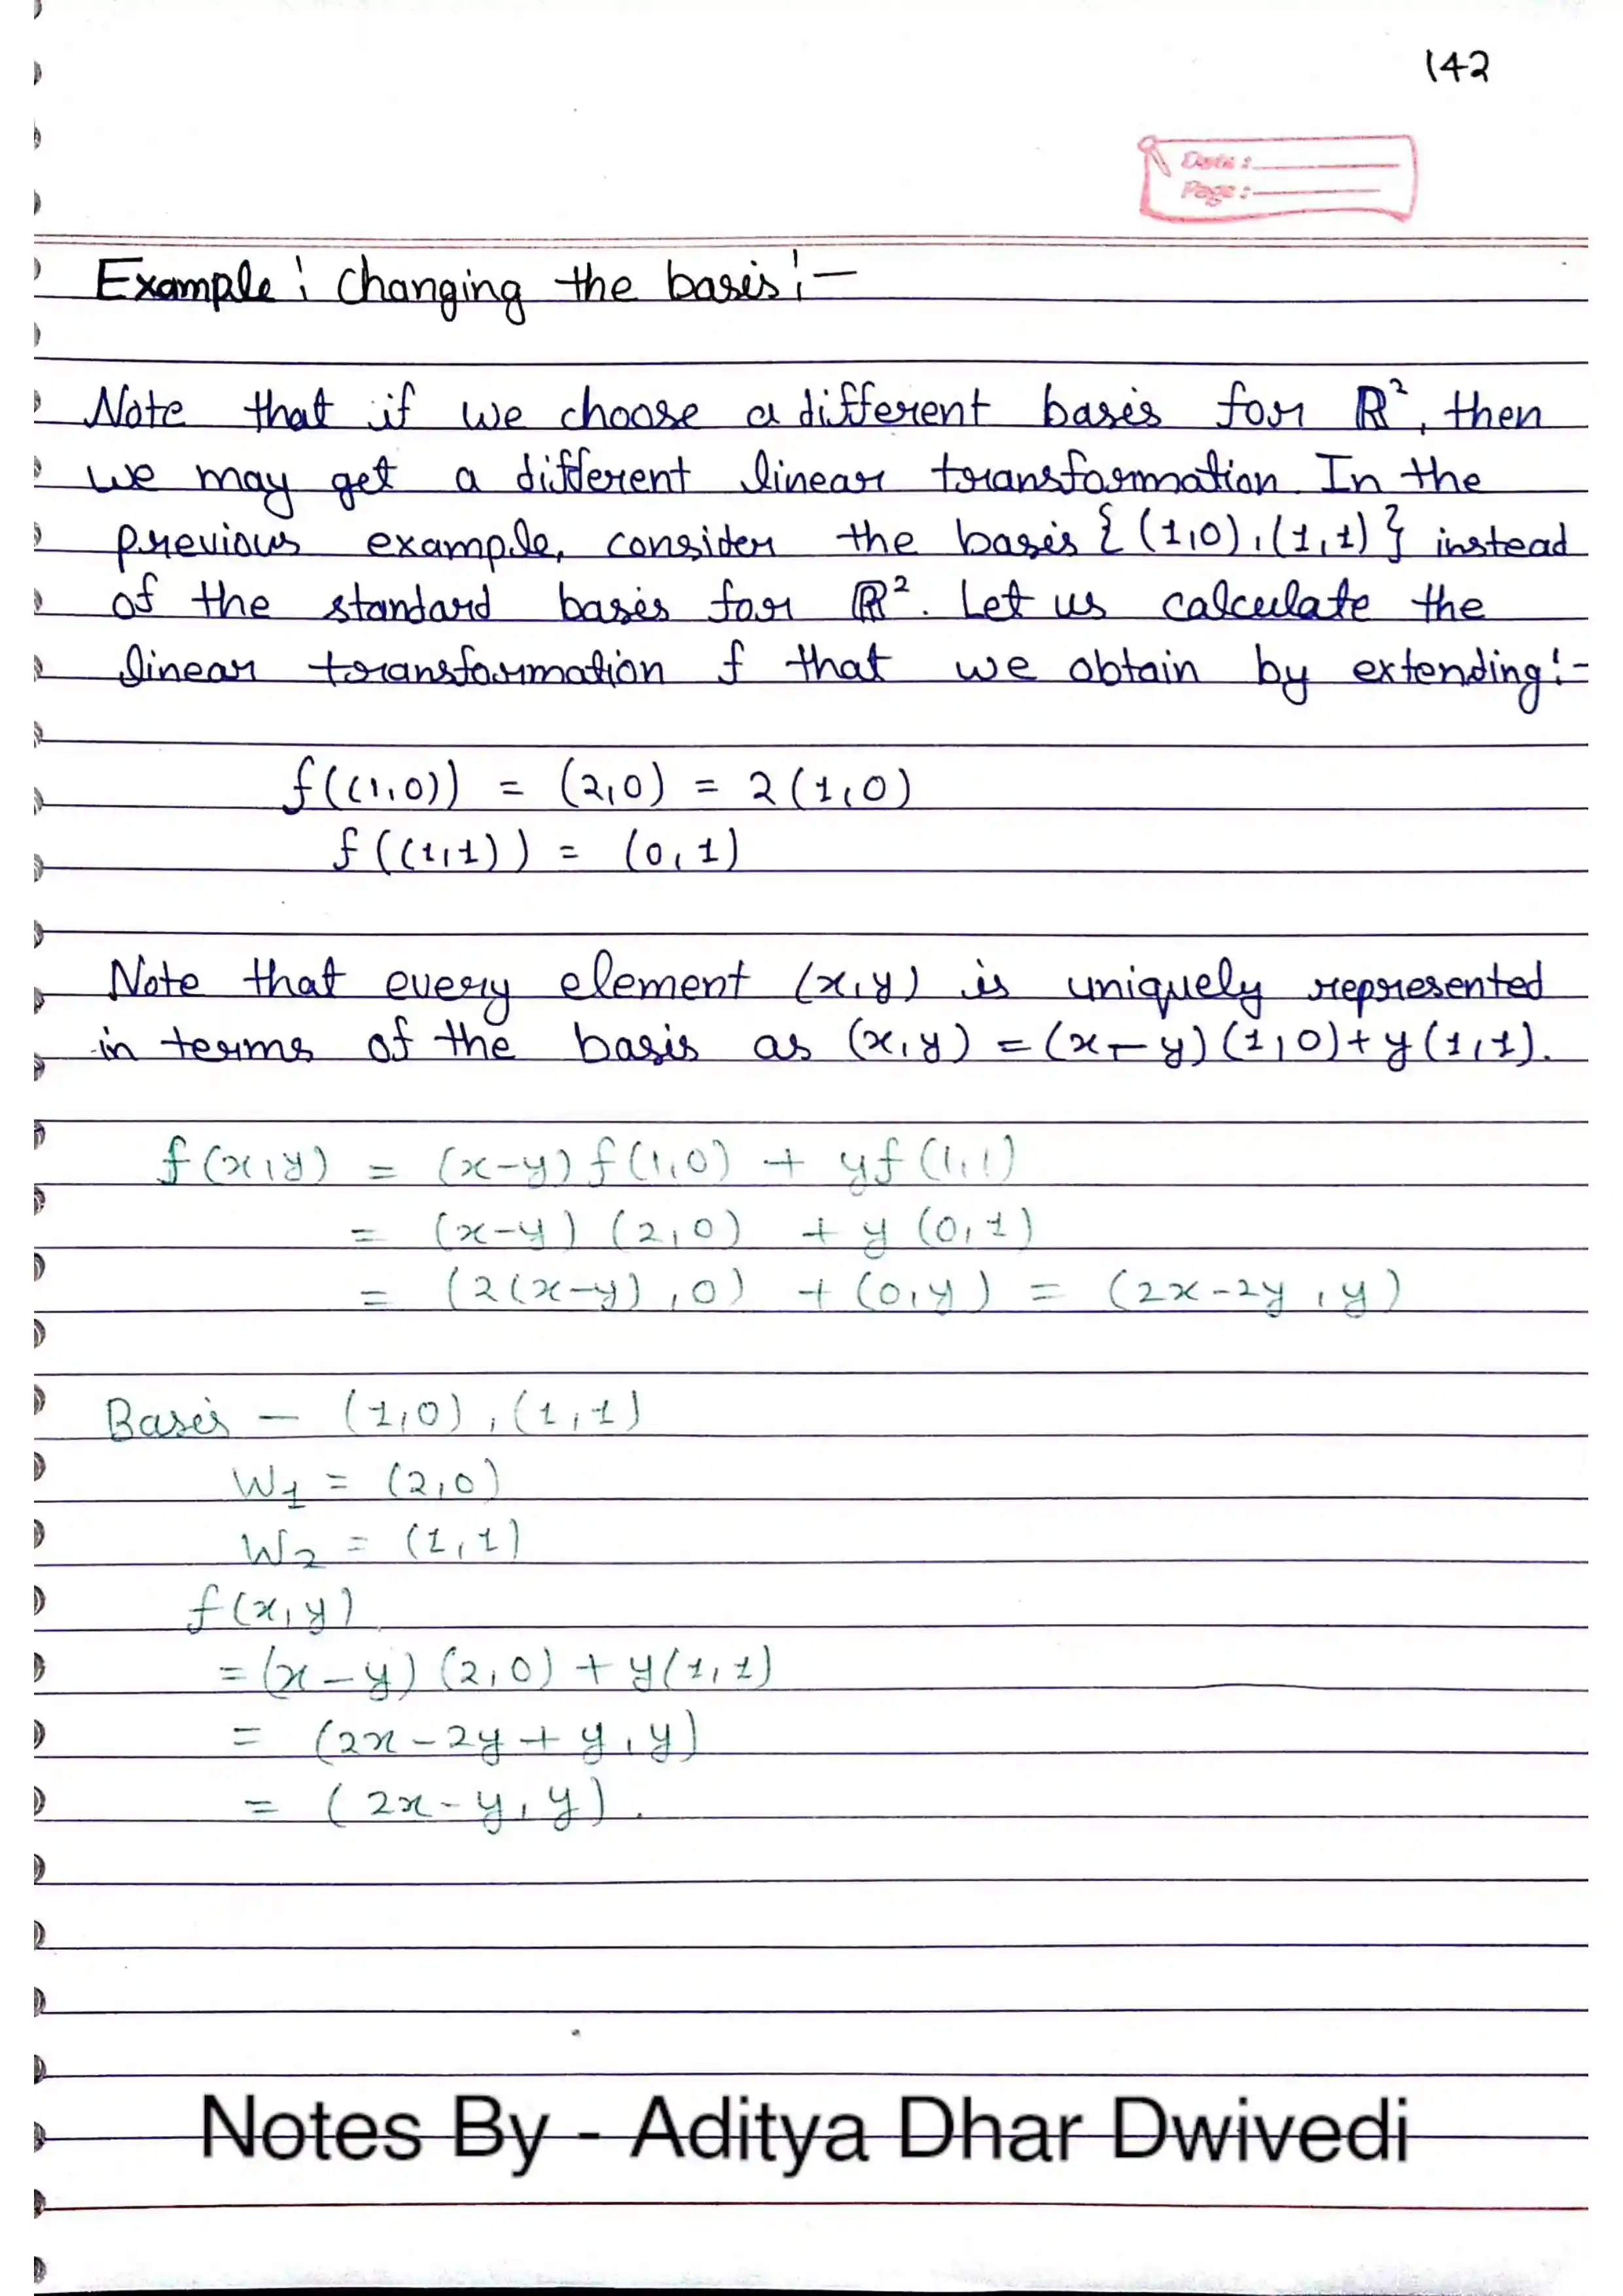 142
Date :
Page :
Example : Changing the basis :-
Note that if we choose a different basis for ℝ², then
we may get a different linear transformation. In the
previous example, consider the basis {(1,0), (1,1)} instead
of the standard basis for ℝ². Let us calculate the
linear transformation f that we obtain by extending :-
f((1,0)) = (2,0) = 2(1,0)
f((1,1)) = (0,1)
Note that every element (x,y) is uniquely represented
in terms of the basis as (x,y) = (x-y)(1,0)+y(1,1).
f(x,y) = (x-y) f(1,0) + yf(1,1)
= (x-y) (2,0) + y (0,1)
= (2(x-y),0) + (0,y) = (2x-2y, y)
Basis — (1,0), (1,1)
W₁ = (2,0)
W₂ = (1,1)
f(x,y)
= (x-y) (2,0) + y(1,1)
= (2x-2y+y, y)
= (2x-y, y).
Notes By - Aditya Dhar Dwivedi